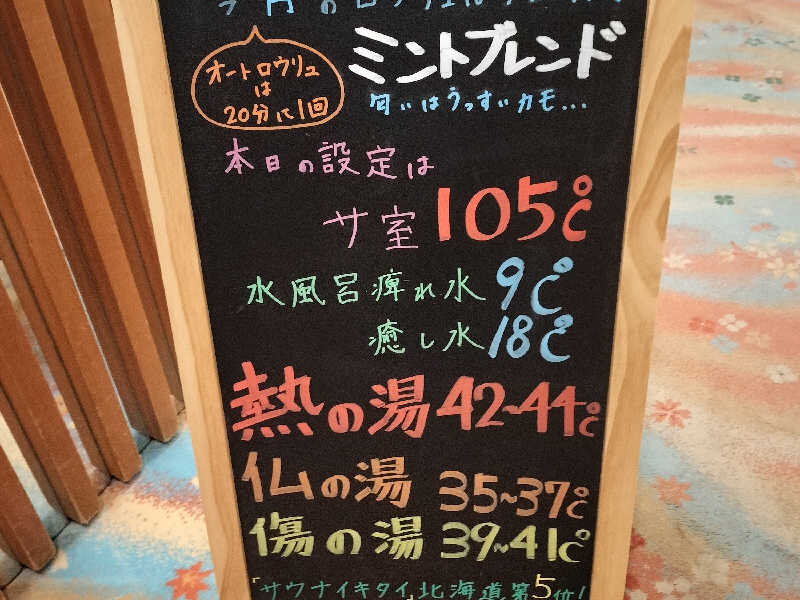 ミントブレンド
オートロウリュ
は
20分に1回
匂いはうっすいカモ...
本日の設定は
サ室 105℃
水風呂痺れ水 9℃
癒し水 18℃
熱の湯 42~44℃
仏の湯 35~37℃
傷の湯 39~41℃
「サウナイキタイ」北海道第5位!